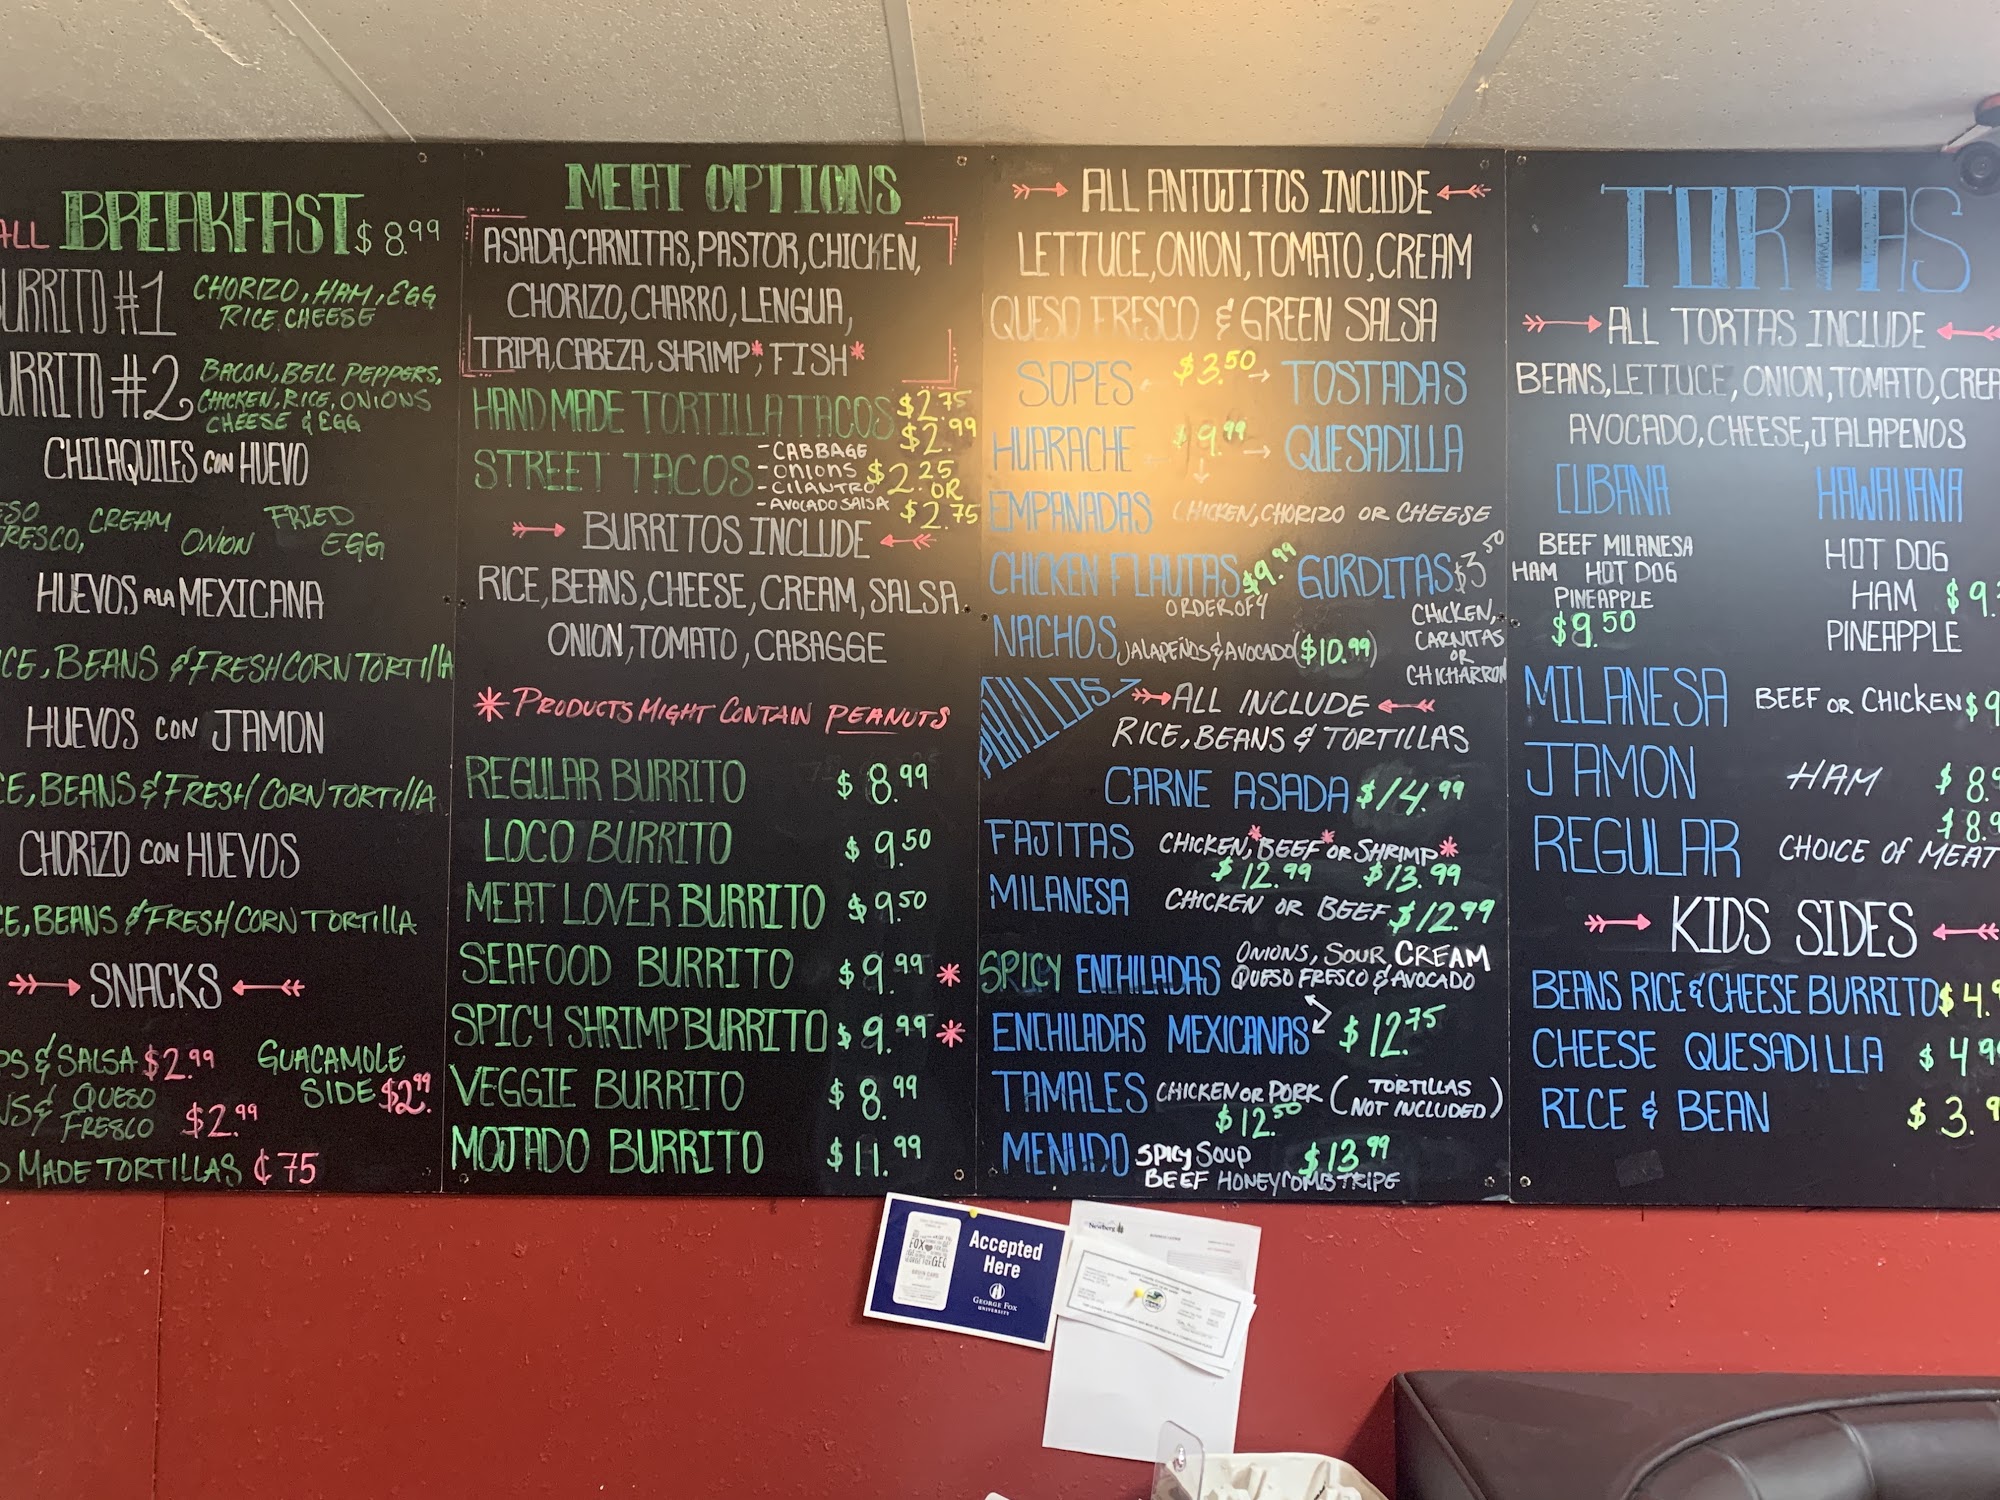 ALL BREAKFAST $8.99
BURRITO #1 CHORIZO, HAM, EGG
RICE CHEESE
BURRITO #2 BACON, BELL PEPPERS,
CHICKEN, RICE, ONIONS
CHEESE & EGG
CHILAQUILES CON HUEVO
FRESCO, CREAM ONION FRIED EGG
HUEVOS A LA MEXICANA
RICE, BEANS & FRESH CORN TORTILLA
HUEVOS CON JAMON
RICE, BEANS & FRESH CORN TORTILLA
CHORIZO CON HUEVOS
RICE, BEANS & FRESH CORN TORTILLA
SNACKS
& SALSA $2.99
GUACAMOLE
SIDE $2.99
& QUESO
FRESCO $2.99
MADE TORTILLAS ¢75
MEAT OPTIONS
ASADA, CARNITAS, PASTOR, CHICKEN,
CHORIZO, CHARRO, LENGUA,
TRIPA, CABEZA, SHRIMP*, FISH*
HAND MADE TORTILLA TACOS $2.75
$2.99
STREET TACOS
- CABBAGE
- ONIONS
- CILANTRO
- AVOCADO SALSA
$2.25
OR
$2.75
BURRITOS INCLUDE
RICE, BEANS, CHEESE, CREAM, SALSA
ONION, TOMATO, CABAGGE
* PRODUCTS MIGHT CONTAIN PEANUTS
REGULAR BURRITO $8.99
LOCO BURRITO $9.50
MEAT LOVER BURRITO $9.50
SEAFOOD BURRITO $9.99 *
SPICY SHRIMP BURRITO $9.99 *
VEGGIE BURRITO $8.99
MOJADO BURRITO $11.99
ALL ANTOJITOS INCLUDE
LETTUCE, ONION, TOMATO, CREAM
QUESO FRESCO & GREEN SALSA
SOPES $3.50 TOSTADAS
HUARACHE $9.99 QUESADILLA
EMPANADAS CHICKEN, CHORIZO OR CHEESE
CHICKEN FLAUTAS $9.99
ORDER OF 4
GORDITAS $3.50
CHICKEN,
CARNITAS
OR
CHICHARRON
NACHOS JALAPEÑOS & AVOCADO ($10.99)
PLATILLOS
ALL INCLUDE
RICE, BEANS & TORTILLAS
CARNE ASADA $14.99
FAJITAS CHICKEN,* BEEF* OR SHRIMP*
$12.99 $13.99
MILANESA CHICKEN OR BEEF $12.99
SPICY ENCHILADAS ONIONS, SOUR CREAM
QUESO FRESCO & AVOCADO
ENCHILADAS MEXICANAS $12.75
TAMALES CHICKEN OR PORK (TORTILLAS
NOT INCLUDED)
$12.50
MENUDO SPICY SOUP $13.99
BEEF HONEYCOMB TRIPE
TORTAS
ALL TORTAS INCLUDE
BEANS, LETTUCE, ONION, TOMATO, CREAM
AVOCADO, CHEESE, JALAPENOS
CUBANA
BEEF MILANESA
HAM HOT DOG
PINEAPPLE
$9.50
HAWAIIANA
HOT DOG
HAM $9.
PINEAPPLE
MILANESA BEEF OR CHICKEN $9
JAMON HAM $8.9
$8.9
REGULAR CHOICE OF MEAT
KIDS SIDES
BEANS RICE & CHEESE BURRITO $4.9
CHEESE QUESADILLA $4.99
RICE & BEAN $3.9
Accepted
Here
GEORGE FOX
UNIVERSITY
Newberg